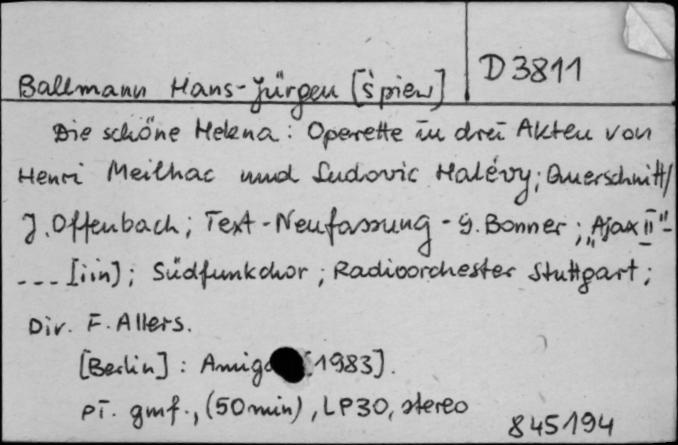 D 3811
Ballmann Hans-Jürgen [śpiew]
Die schöne Helena: Operette in drei Akten von
Henri Meilhac und Ludovic Halévy; Querschnitt/
J. Offenbach; Text-Neufassung - G. Bonner; „Ajax II"-
--- [iin]; Südfunkchor; Radioorchester Stuttgart;
Dir. F. Allers.
[Berlin]: Amiga [1983].
pł. gmf., (50 min), LP30, stereo
845194